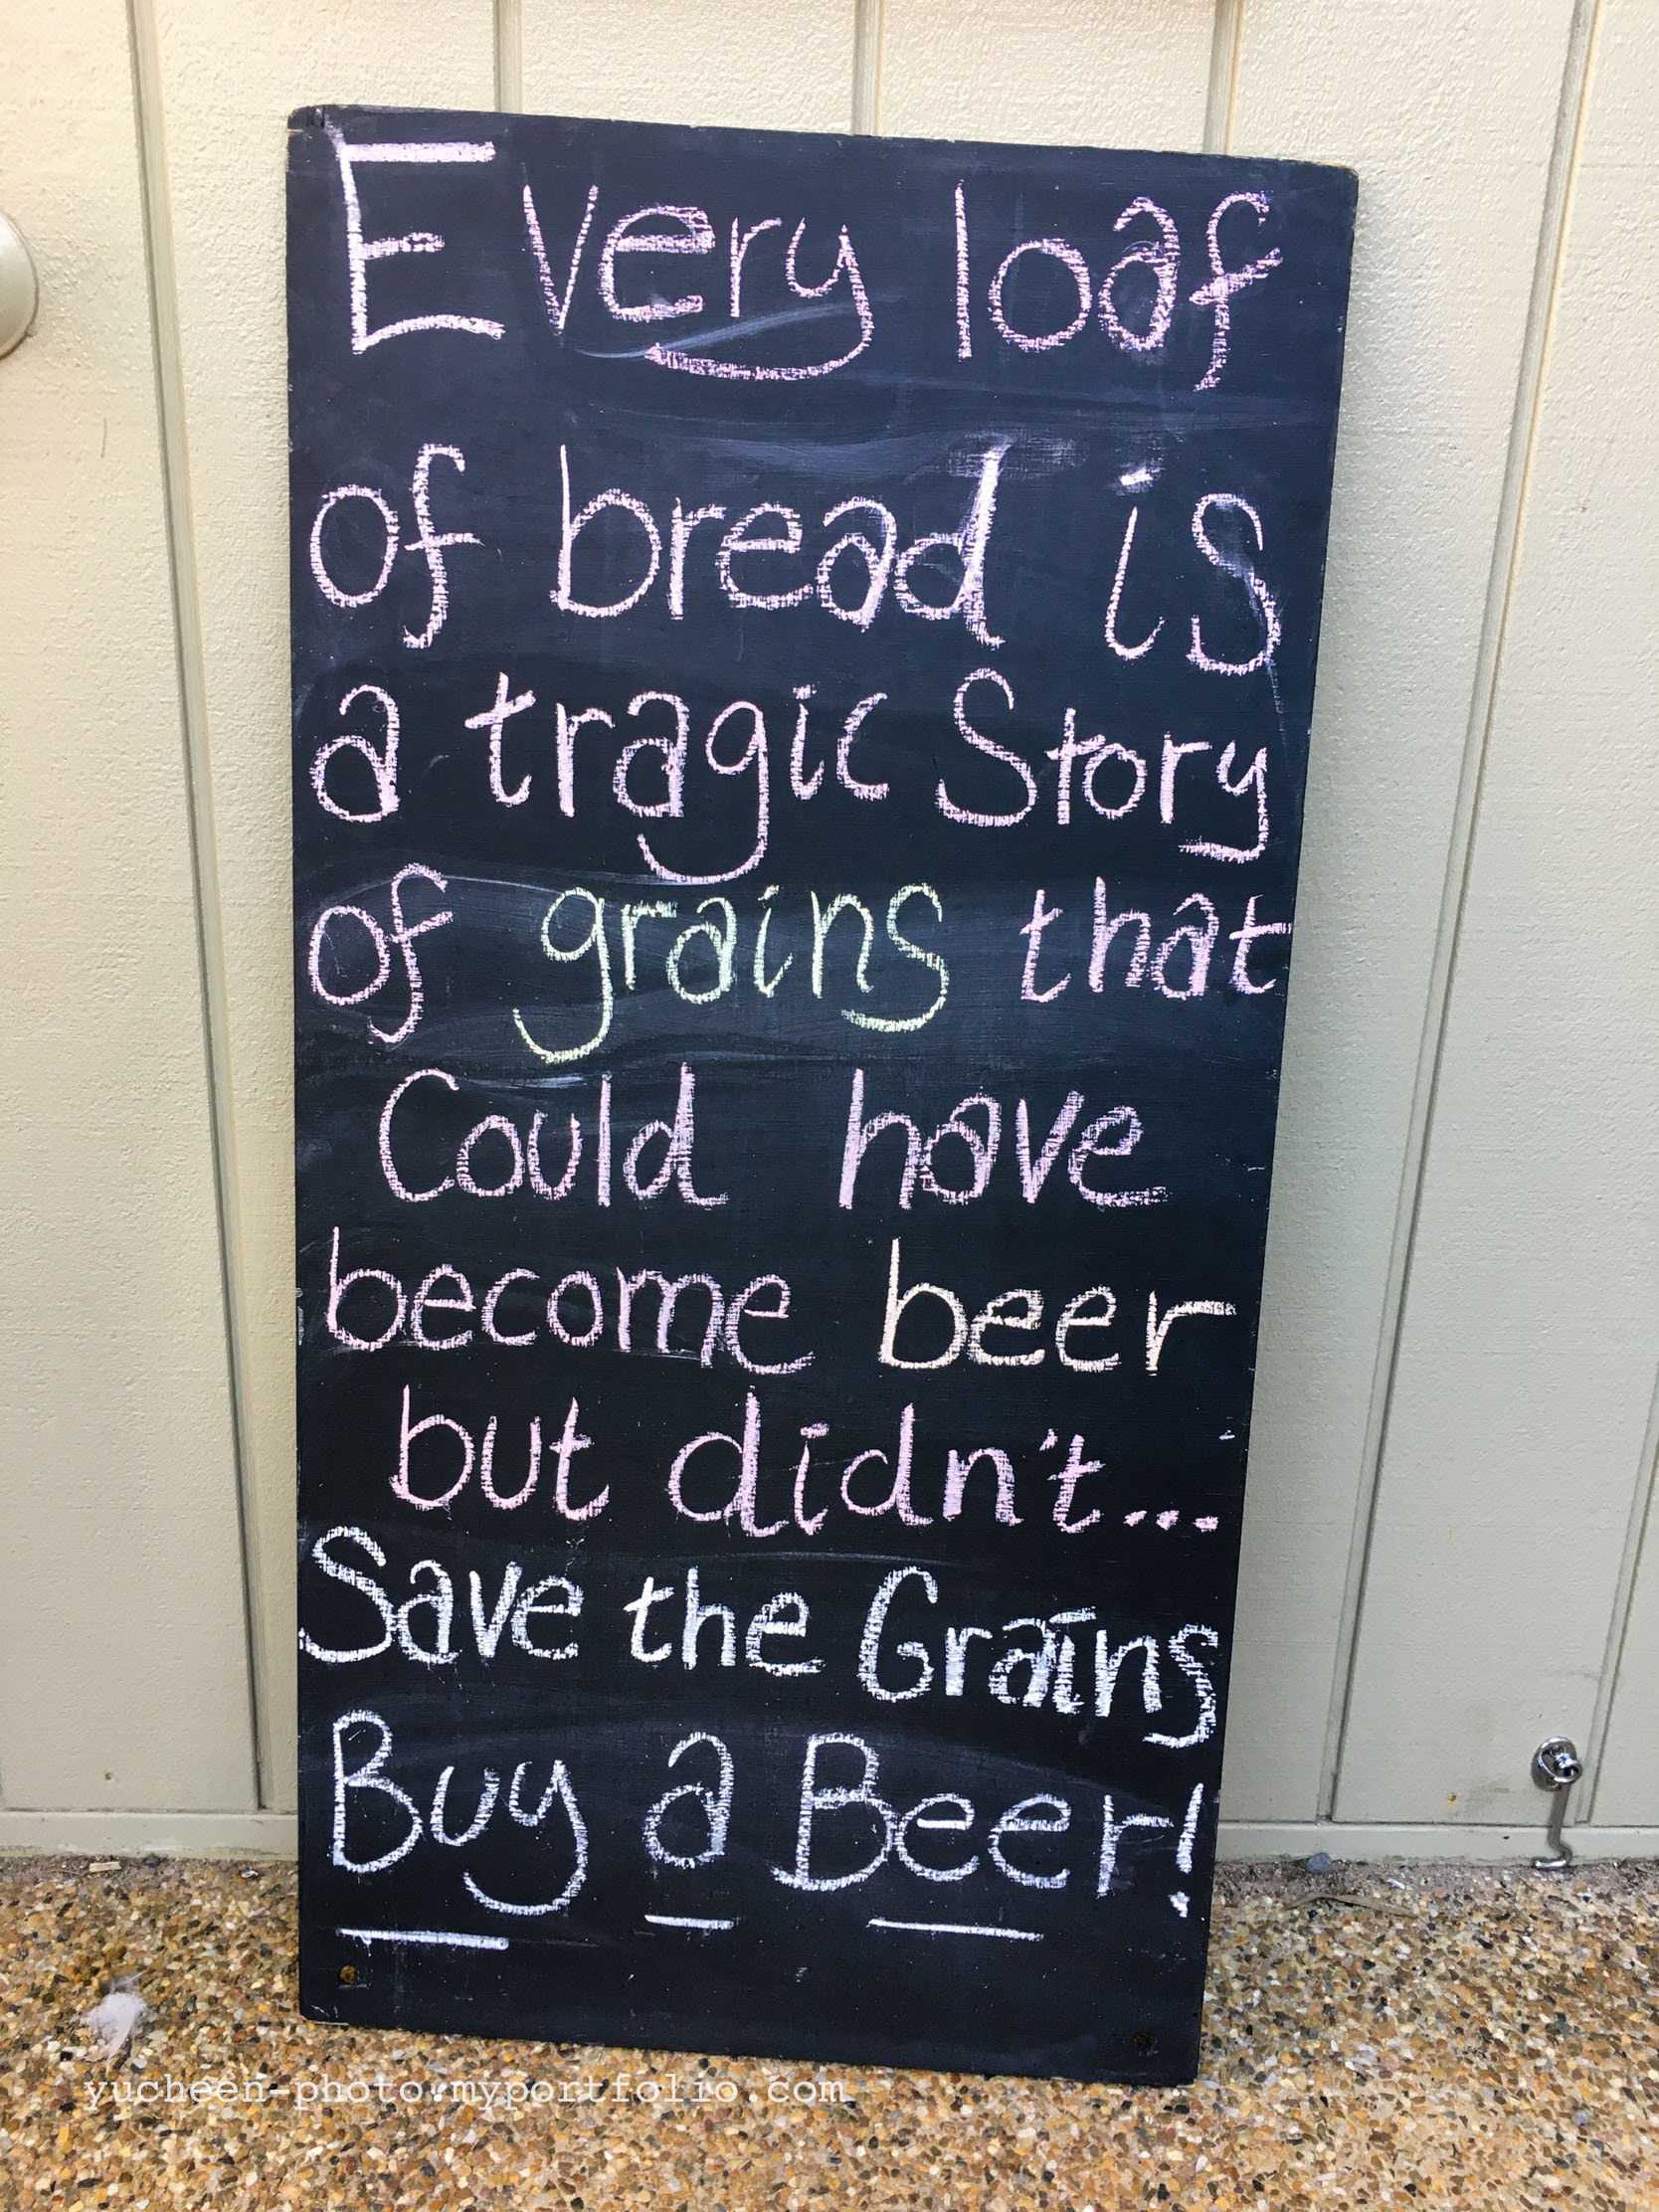 Every loaf
of bread is
a tragic Story
of grains that
Could have
become beer
but didn't...
Save the Grains
Buy a Beer!
yucheen-photo.myportfolio.com